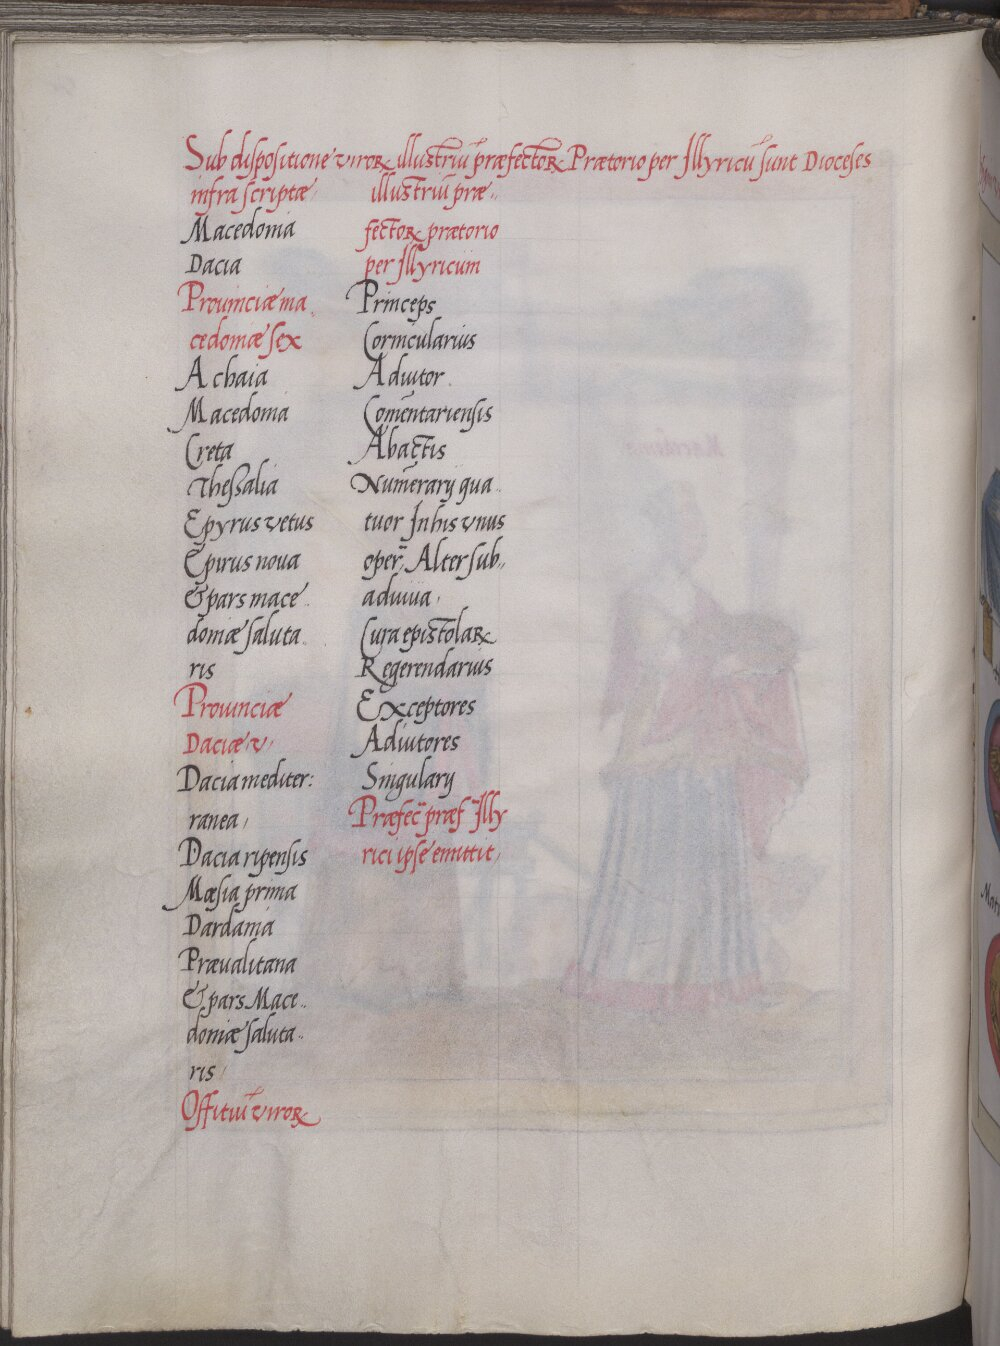 Sub dispositione viroꝝ illustriū præfectoꝝ Prætorio per Illyricū sunt Dioceses
infra scriptæ
Macedonia
Dacia
Prouinciæ ma
cedoniæ sex
Achaia
Macedonia
Creta
Thessalia
Epyrus vetus
Epirus noua
& pars mace
doniæ saluta
ris
Prouinciæ
Daciæ v
Dacia mediter:
ranea
Dacia ripensis
Mœsia prima
Dardania
Præualitana
& pars Mace
doniæ saluta
ris
Offitiū viroꝝ
illustriū præ
fectoꝝ prætorio
per Illyricum
Princeps
Cornicularius
Adiutor
Comẽntariensis
Abactis
Numẽrarij qua
tuor In his vnus
oper: Alter sub
adiuua
Cura epistolaꝝ
Regerendarius
Exceptores
Adiutores
Singularij
Præfec̃ præf Illy
rici ipse emittit